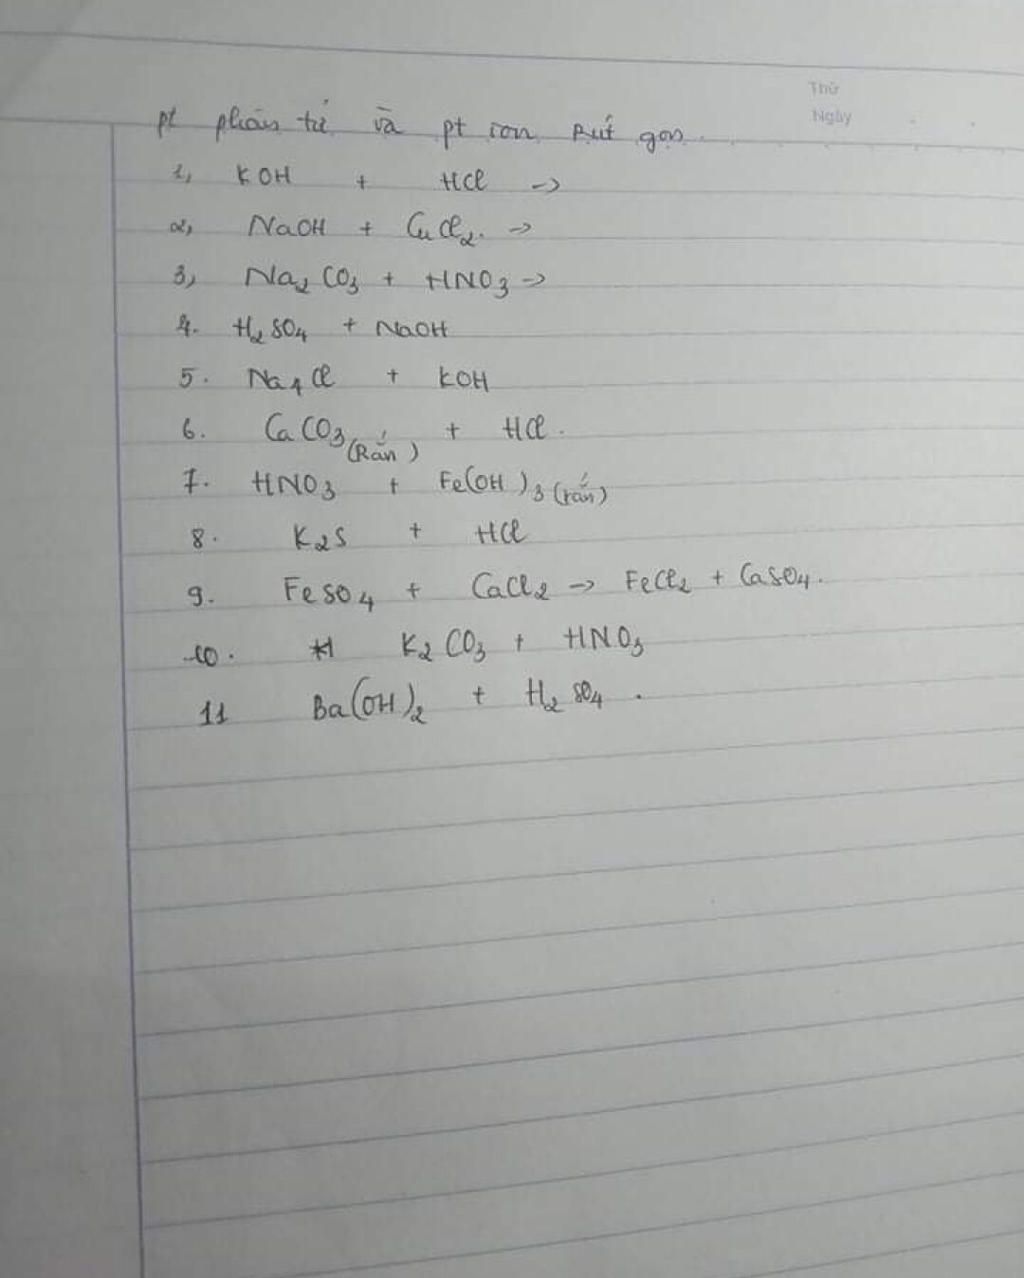 Thứ
Ngày
pt phân tử và pt ion Rút gọn.
1, KOH + HCl ->
2, NaOH + CuCl2. ->
3, Na2CO3 + HNO3 ->
4. H2SO4 + NaOH
5. Na4Cl + KOH
6. CaCO3 (Rắn) + HCl.
7. HNO3 + Fe(OH)3 (rắn)
8. K2S + HCl
9. FeSO4 + CaCl2 -> FeCl2 + CaSO4.
10. K2CO3 + HNO3
11 Ba(OH)2 + H2SO4.